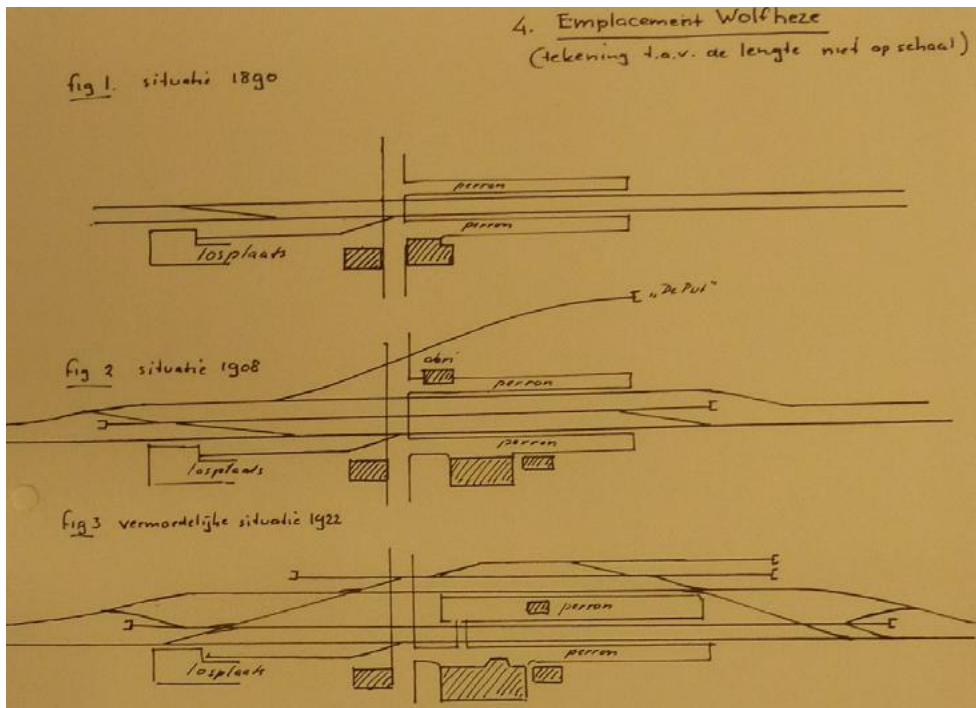 4. Emplacement Wolfheze
(tekening t.a.v. de lengte niet op schaal)
fig 1. situatie 1890
perron
perron
losplaats
"De Put"
fig 2 situatie 1908
abri
perron
perron
losplaats
fig 3 vermoedelijke situatie 1922
perron
perron
losplaats